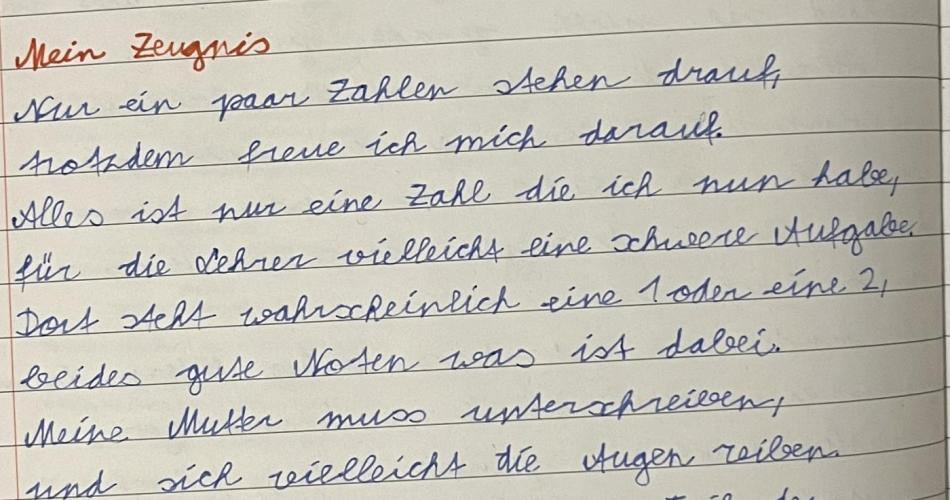 Mein Zeugnis
Nur ein paar Zahlen stehen drauf,
trotzdem freue ich mich darauf.
Alles ist nur eine Zahl die ich nun habe,
für die Lehrer vielleicht eine schwere Aufgabe.
Dort steht wahrscheinlich eine 1 oder eine 2,
beides gute Noten was ist dabei.
Meine Mutter muss unterschreiben,
und sich vielleicht die Augen reiben.